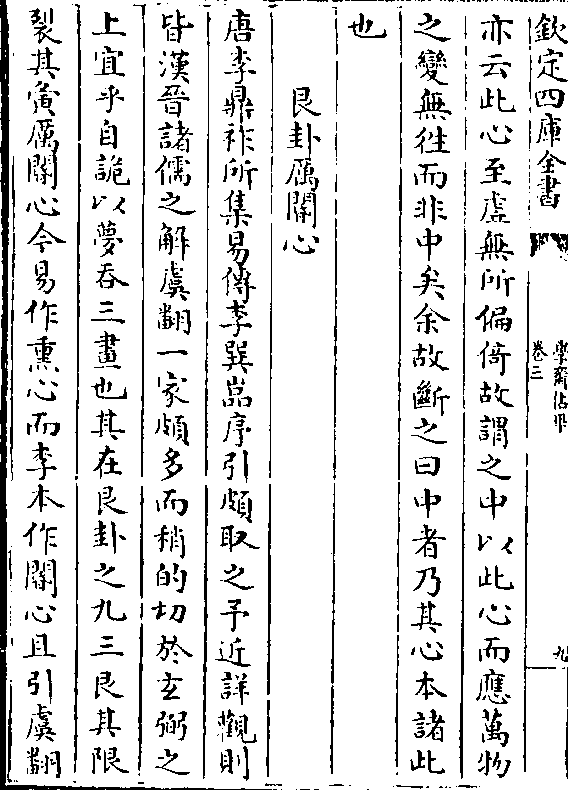 欽定四庫全書
學齋佔畢
卷三
九
亦云此心至虛無所偏倚故謂之中以此心而應萬物
之變無徃而非中矣余故斷之曰中者乃其心本諸此
也
艮卦厲閽心
唐李鼎祚所集易傳李巽嵓序引頗取之予近詳觀則
皆漢晉諸儒之解虞翻一家頗多而稍的切於玄弼之
上宜乎自詭以夢吞三畫也其在艮卦之九三艮其限
裂其夤厲閽心今易作熏心而李本作閽心且引虞翻